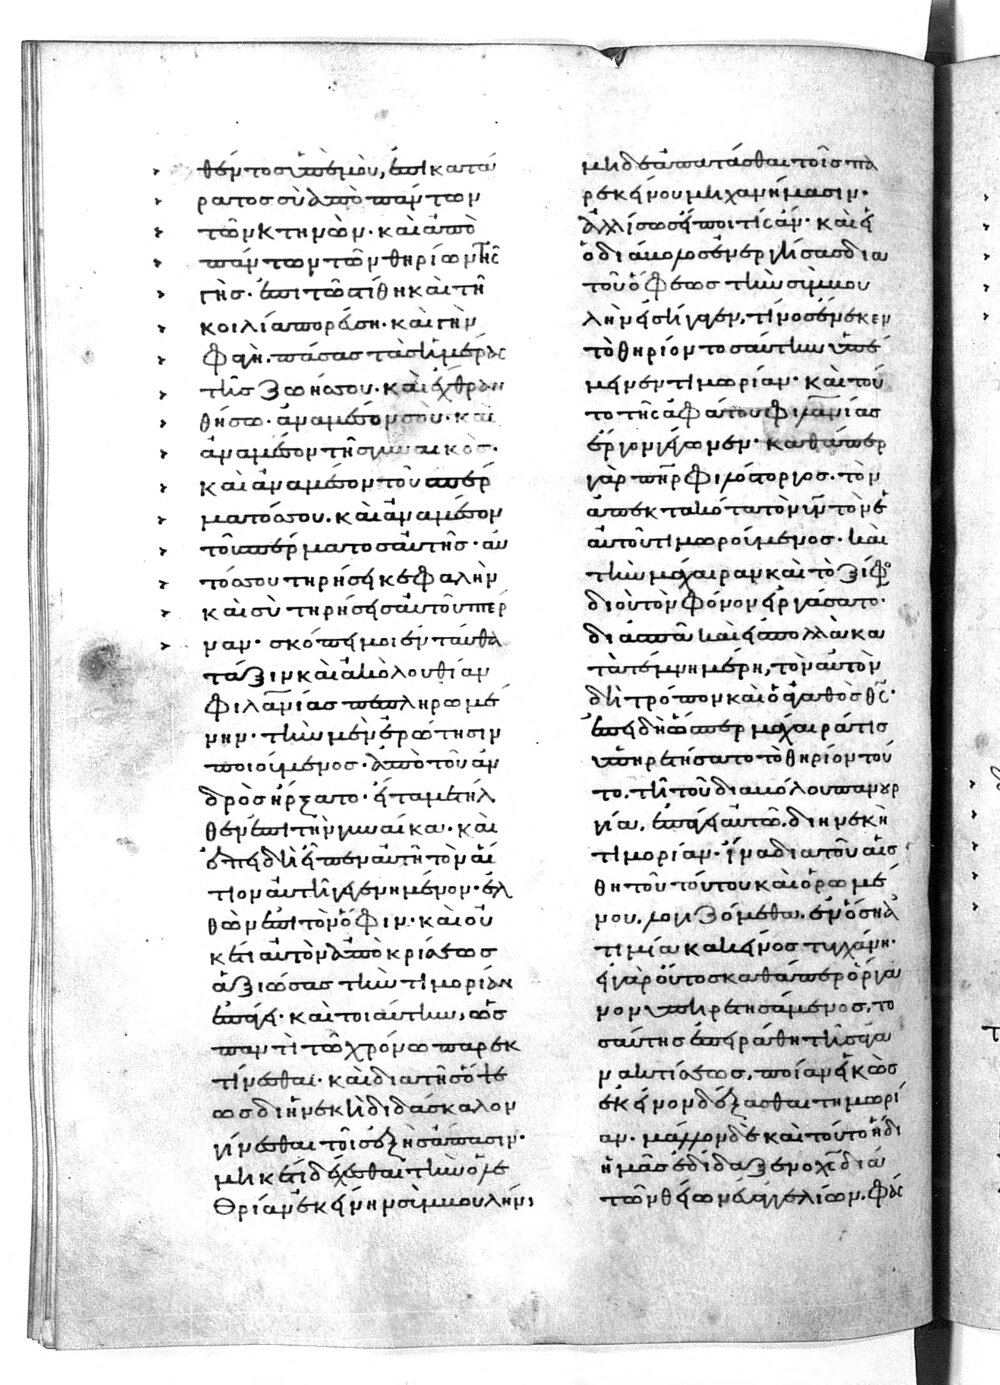 θέντος ὑπ' ἐμοῦ, ἐπικατά
ρατος σὺ ἀπὸ πάντων
τῶν κτηνῶν· καὶ ἀπὸ
πάντων τῶν θηρίων τῆς
γῆς· ἐπὶ τῶ στήθη καὶ τῆ
κοιλία πορεύση· καὶ γῆν
φαγῆ. πάσας τὰς ἡμέρας
τῆς ζωῆς σου· καὶ ἔχθραν
θήσω· ἀναμέσον σοῦ· καὶ
ἀναμέσον τῆς γυναικὸς·
καὶ ἀναμέσον τοῦ σπέρ
ματός σου. καὶ ἀναμέσον
τοῦ σπέρματος αὐτῆς· αὐ
τός σου τηρήσει κεφαλὴν
καὶ σὺ τηρήσεις αὐτοῦ πτέρ
ναν· σκόπει μοι ἐνταῦθα
τάξιν καὶ ἀκολουθίαν
φιλανίας πεπληρωμέ
νην· τὴν μὲν ἐρώτησιν
ποιούμενος· ἀπὸ τοῦ ἀν
δρὸς ἤρξατο· εἶτα μετῆλ
θεν ἐπὶ τὴν γυναίκα· καὶ
ἐπειδὴ εἶπεν αὐτὴ τὸν αἴ
τιον αὐτῆ γεγενημένον· ἐλ
θὼν ἐπὶ τὸν ὄφιν· καὶ οὐ
κέτι αὐτὸν ἀποκρίσεως
ἀξιώσας τὴν τιμορίαν
ἐπάγει· καὶ τοιαύτην, ὡς
παντὶ τῶ χρόνω παρεκ
τίνεσθαι· καὶ διὰ τῆς ὄψε
ως διηνεκῆ διδάσκαλον
γίνεσθαι τοῖς ἑξῆς ἅπασιν·
μηκέτι δέχεσθαι τὴν ὀλε
θρίαν ἐκείνην συμβουλήν,
μηδὲ ἀπατᾶσθαι τοῖς πα
ρ' ἐκείνου μηχανήμασιν·
ἀλλ' ἴσως εἴποι τίς ἄν· καὶ εἰ
ὁ διάβολος ἐνεργήσας διὰ
τοῦ ὄφεως τὴν συμβου
λὴν εἰσήγαγεν, τίνος ἕνεκεν
τὸ θηρίον τοσαύτην ὑπέ
μεινεν τιμωρίαν· καὶ τοῦ
το τῆς ἀφάτου φιλανίας
ἔργον γέγονεν· καθάπερ
γὰρ πηρ φιλόστοργος· τὸν
ἀπεκτακότα τὸν υν τὸν ἑ
αυτοῦ τιμωρούμενος· καὶ
τὴν μάχαιραν καὶ τὸ ξίφος
δι' οὗ τὸν φόνον εἰργάσατο·
διασπᾶ καὶ εἰς πολλὰ κα
τατέμνη μέρη, τὸν αὐτὸν
δὴ τρόπον καὶ ὁ ἀγαθὸς θς·
ἐπειδὴ ὥσπερ μάχαιρά τις
ὑπηρετήσατο τὸ θηρίον τοῦ
το. τῆ τοῦ διαβόλου πανουρ
γία, ἐπάγει αὐτῶ. διηνεκῆ
τιμορίαν· ἵνα διὰ τοῦ αἰσ
θητοῦ τούτου καὶ ὁρωμέ
νου, λογιζόμεθα, ἐν ὅση ἀ
τιμία κακεῖνος τυγχάνη·
εἰ γὰρ οὗτος καθάπερ ὄργα
νον ὑπηρετησάμενος, το
σαύτης ἐπειράθη τῆς ἀγα
νακτήσεως, ποίαν εἰκὼς
ἐκεῖνον δέξασθαι τημωρί
αν· μᾶλλον δὲ καὶ τοῦτο ἤδη
ἡμᾶς ἐδίδαξεν ὁ χς διὰ
τῶν θείων εὐαγγελίων. φάσ